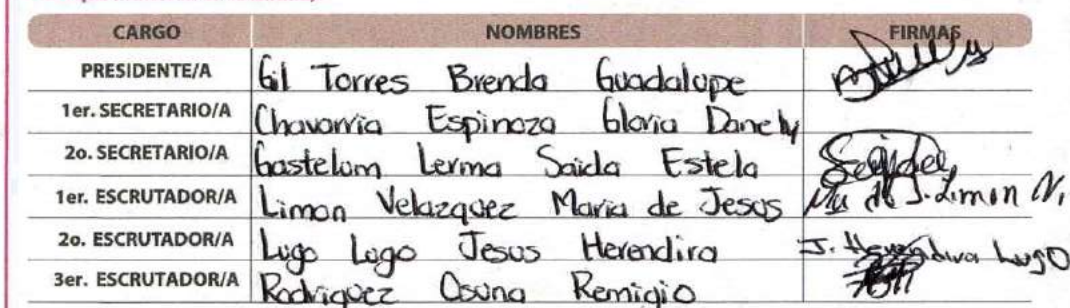 CARGO NOMBRES FIRMAS
PRESIDENTE/A Gil Torres Brenda Guadalupe
1er. SECRETARIO/A Chavarria Espinoza Gloria Danely
2o. SECRETARIO/A Gastelum Lerma Saida Estela Saida
1er. ESCRUTADOR/A Limon Velazquez Maria de Jesus Ma de J. Limon V.
2o. ESCRUTADOR/A Lugo Lugo Jesus Herendira J. Herendira Lugo
3er. ESCRUTADOR/A Rodriguez Osuna Remigio